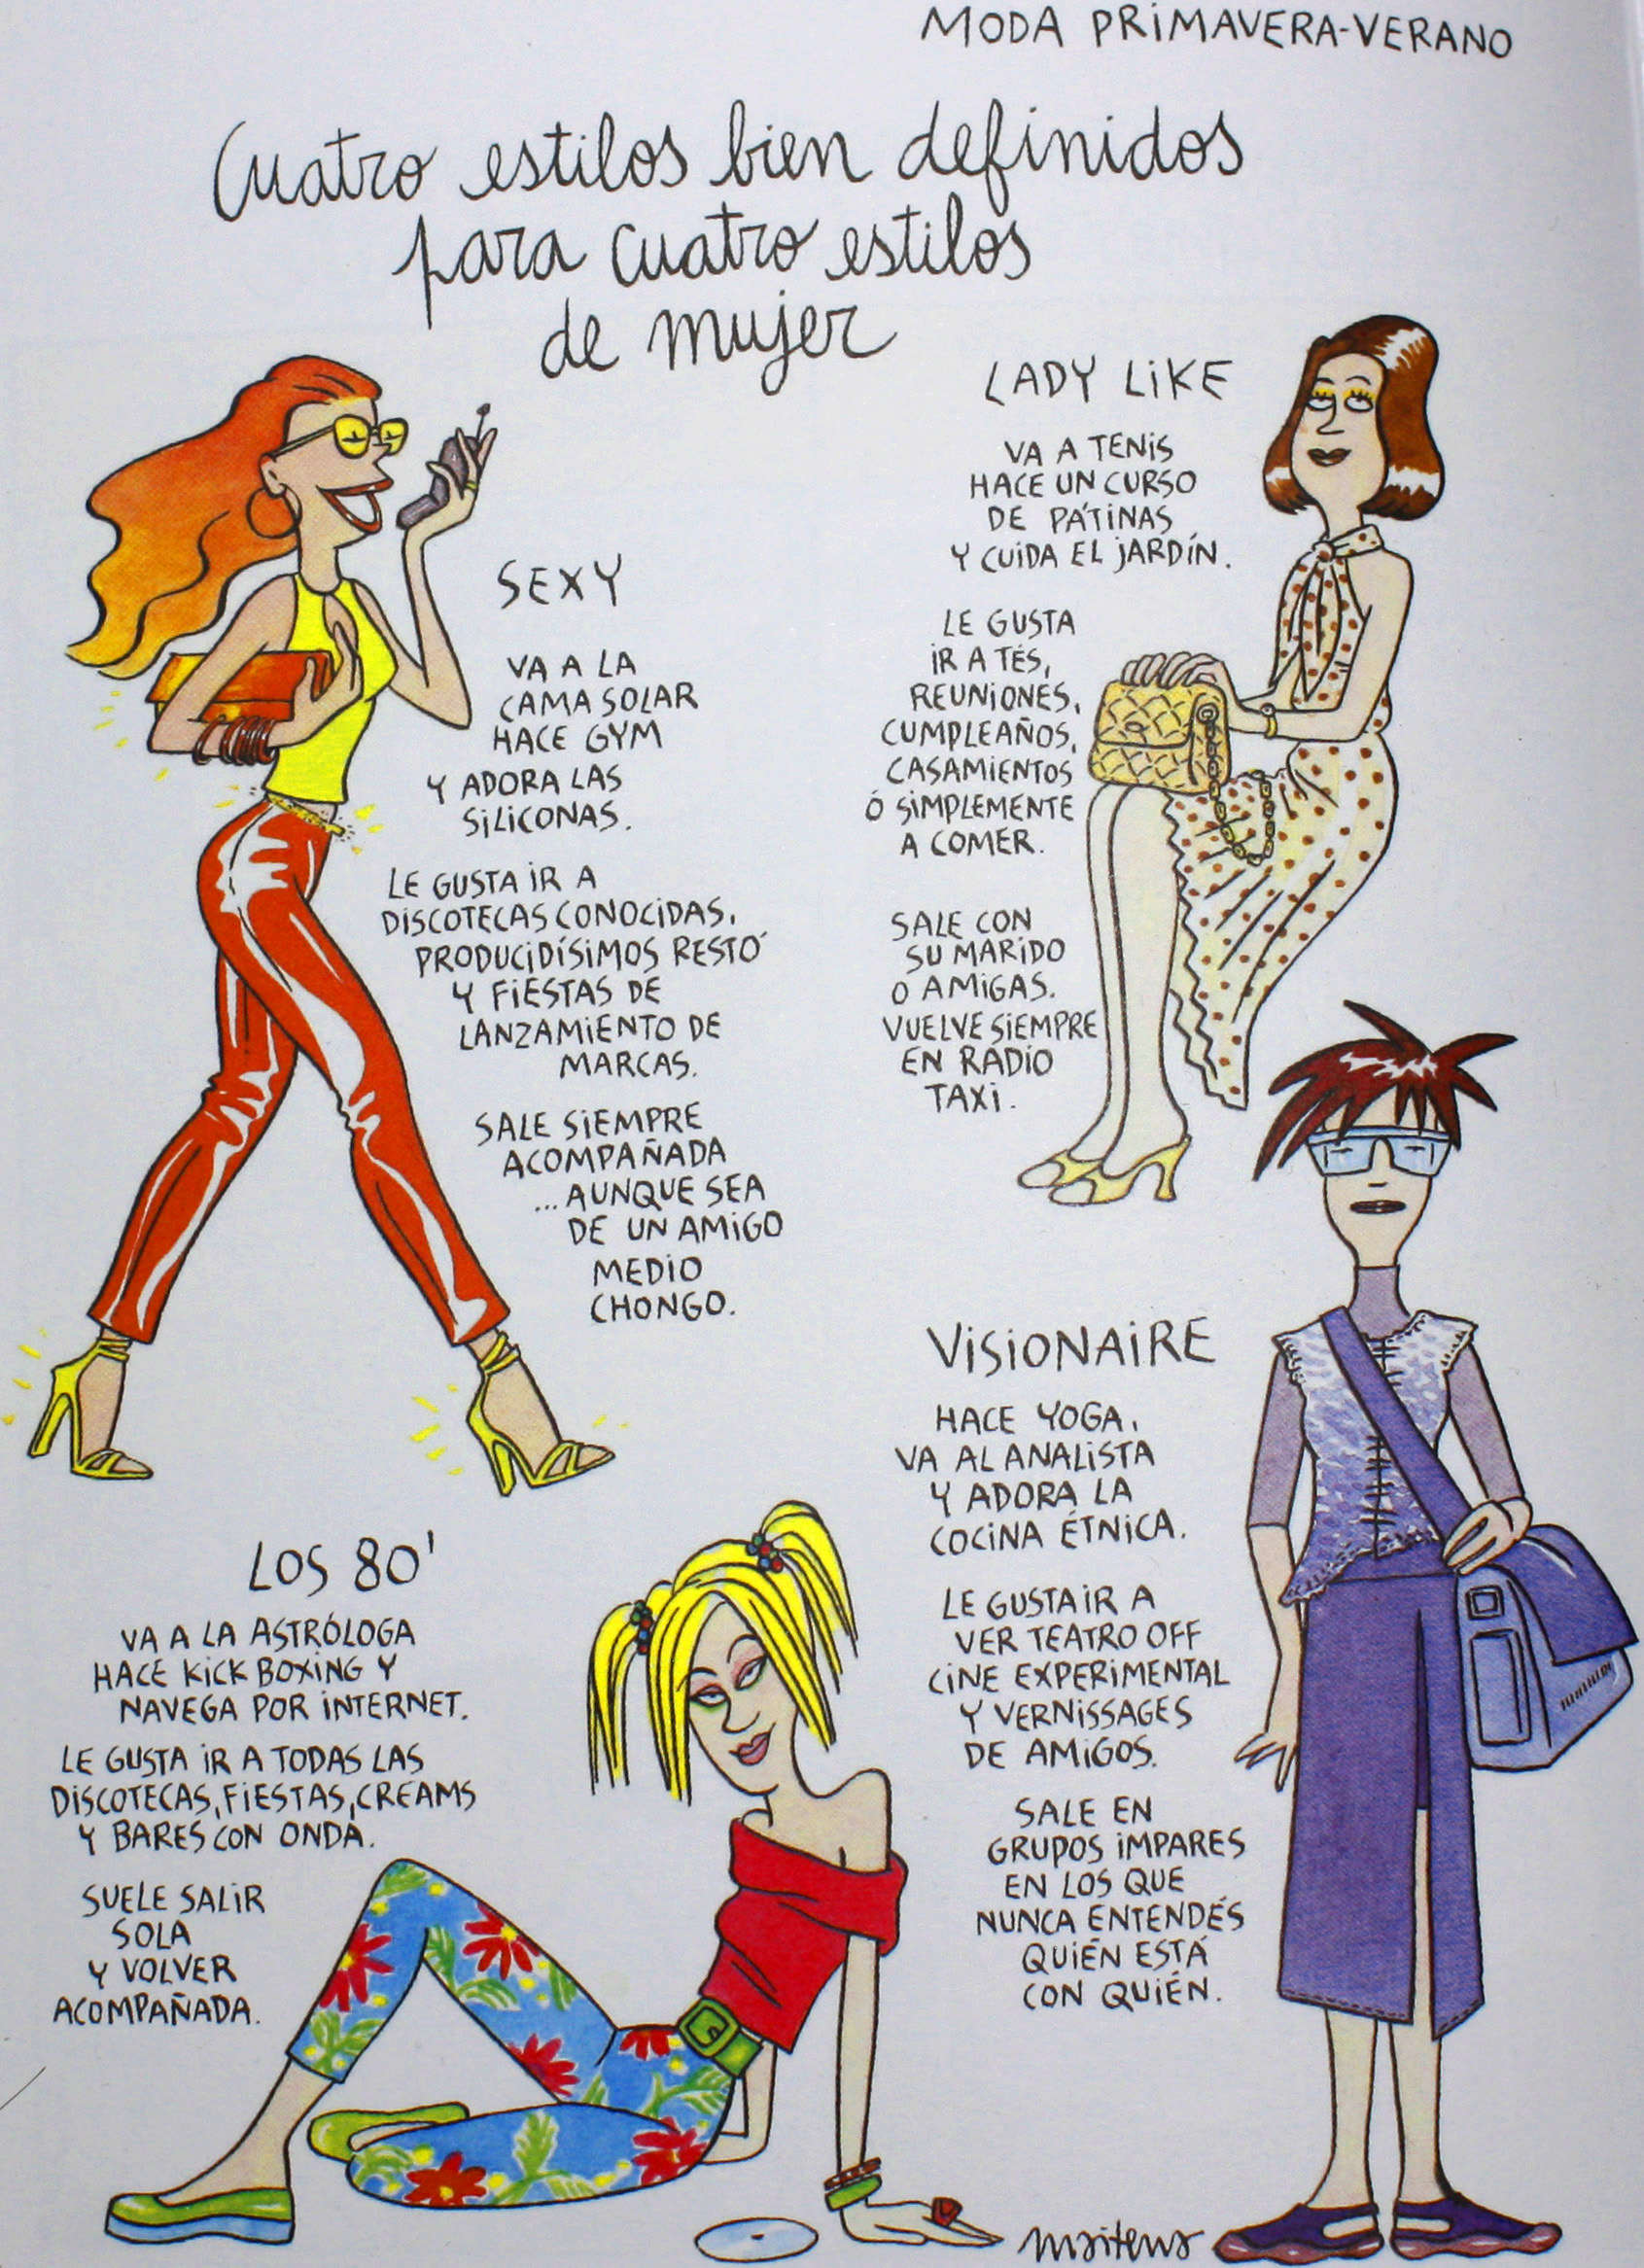 MODA PRIMAVERA-VERANO
Cuatro estilos bien definidos
para cuatro estilos
de mujer
SEXY
VA A LA
CAMA SOLAR
HACE GYM
Y ADORA LAS
SILICONAS.
LE GUSTA IR A
DISCOTECAS CONOCIDAS,
PRODUCIDÍSIMOS RESTÓ
Y FIESTAS DE
LANZAMIENTO DE
MARCAS.
SALE SIEMPRE
ACOMPAÑADA
...AUNQUE SEA
DE UN AMIGO
MEDIO
CHONGO.
LADY LIKE
VA A TENIS
HACE UN CURSO
DE PÁTINAS
Y CUIDA EL JARDÍN.
LE GUSTA
IR A TÉS,
REUNIONES,
CUMPLEAÑOS,
CASAMIENTOS
Ó SIMPLEMENTE
A COMER.
SALE CON
SU MARIDO
O AMIGAS.
VUELVE SIEMPRE
EN RADIO
TAXI.
VISIONAIRE
HACE YOGA,
VA AL ANALISTA
Y ADORA LA
COCINA ÉTNICA.
LE GUSTA IR A
VER TEATRO OFF
CINE EXPERIMENTAL
Y VERNISSAGES
DE AMIGOS.
SALE EN
GRUPOS IMPARES
EN LOS QUE
NUNCA ENTENDÉS
QUIÉN ESTÁ
CON QUIÉN.
LOS 80'
VA A LA ASTRÓLOGA
HACE KICK BOXING Y
NAVEGA POR INTERNET.
LE GUSTA IR A TODAS LAS
DISCOTECAS, FIESTAS, CREAMS
Y BARES CON ONDA.
SUELE SALIR
SOLA
Y VOLVER
ACOMPAÑADA.
maitena